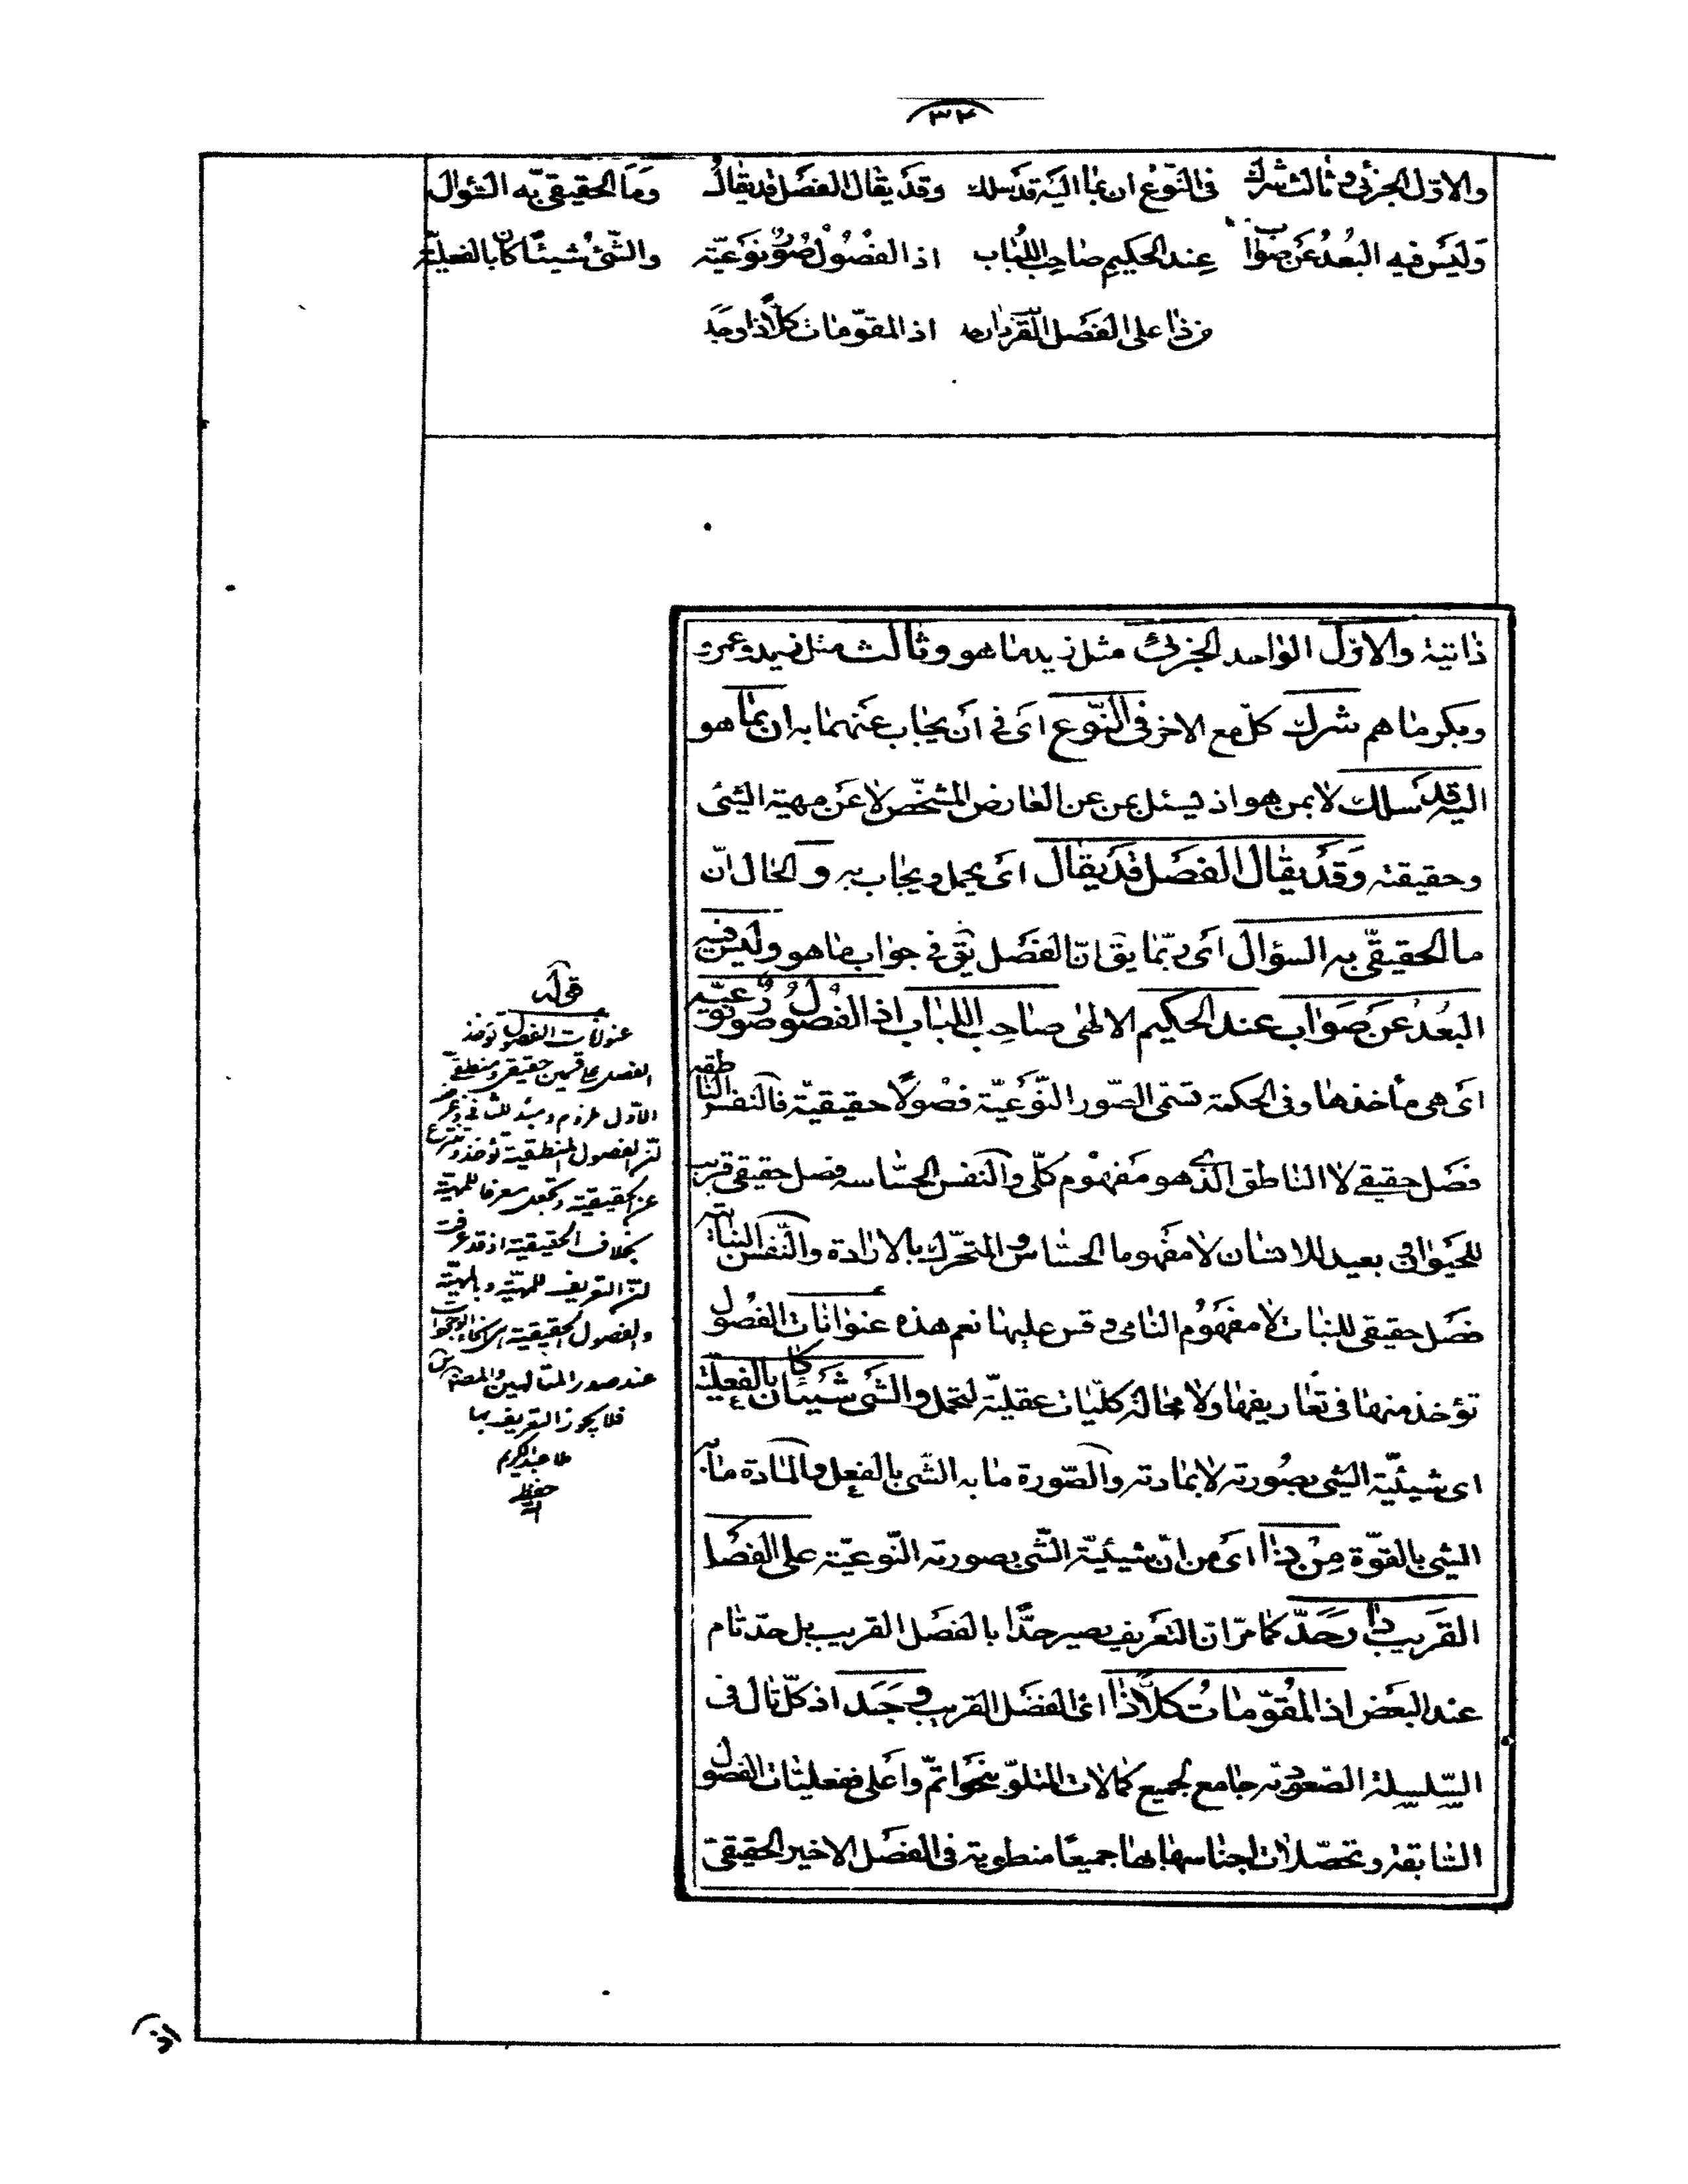 ٣٢
والاوّل الجزئى وثالث شرك فى النّوع ان بما اليه قد سلك وقد يقال الفصل قد يقال وما الحقيقى به السّؤال
وليس فيه البُعدُ عن صواب عند الحكيم صاحب اللُّباب اذ الفصُول صُوَر نوعيّة والشّئ شيئًا كان بالفعليّة
من ذا على الفصل القريب دار حد اذ المقوّمات كلًّا ذا وجد
ذاتية والاوّل الواحد الجزئى مثل زيد ما هو وثالث مثل زيد وعمرو
وبكر ما هم شرك كلّ مع الاخر فى النّوع اى فى أن يجاب عنهما به ان بما هو
اليه قد سلك لا بمن هو اذ يسئل بمن عن العارض المشخّص لا عن مهيّة الشئ
وحقيقته وقد يقال الفصل قد يقال اى يحمل ويجاب به و الحال انّ
ما الحقيقىّ به السؤال اى ربّما يق انّ الفصل يق فى جواب ما هو وليس فيه
البُعدُ عن صواب عند الحكيم الالهى صاحب اللباب اذ الفصُول صور نوعيّه
اى هى مأخذها وفى الحكمة تسمّى الصّور النّوعيّة فصُولًا حقيقيّة فالنفس الناطقه
فصل حقيقى لا الناطق الذى هو مفهوم كلّى والنفس الحسّاسه فصل حقيقى قريب
للحيوان وبعيد للانسان لا مفهوما الحسّاس و المتحرّك بالارادة والنّفس النباتيّه
فصل حقيقى للنبات لا مفهوم النامى وقس عليها نعم هذه عنوانات الفصُول
تؤخذ منها فى تعاريفها ولا محالة كليّات عقليّة لتحمل والشئ شيئا كان بالفعليّة
اى شيئيّة الشئ بصُورته لا بمادته والصّورة ما به الشّئ بالفعل والمادة ما به
الشئ بالقوّة مِن ذا اى من انّ شيئيّة الشّئ بصورته النّوعيّة على الفصل
القريب دار حَدّ كما مرّ ان التعريف يصير حدًّا بالفصل القريب بل حدّ تام
عند البعض اذ المُقوّماتُ كلًّا ذا اى الفصل القريب وجد اذ كلّ تال فى
السّلسلة الصّعوديّه جامع لجميع كمالات المتلوّ بنحو اتمّ وأعلى ففعليّات الفصول
السّابقة وتحصّلات اجناسها بها جميعًا منطوية فى الفصل الاخير الحقيقىّ
قوله
عنوانات الفصول تؤخذ
الفصل على قسمين حقيقى ومنطقى
الاوّل ملزوم ومبدء للثانى
الفصول المنطقية تؤخذ وتنتزع
عن الحقيقية وتجعل معرفا للمهيّة
بخلاف الحقيقية اذ قد عرفت
التعريف للمهيّة وبالمهيّة
والفصول الحقيقية
عند صدر المتالهين والمصنف
فلا يجوز التعريف بها
ملا عبد الكريم
حفظه
الله